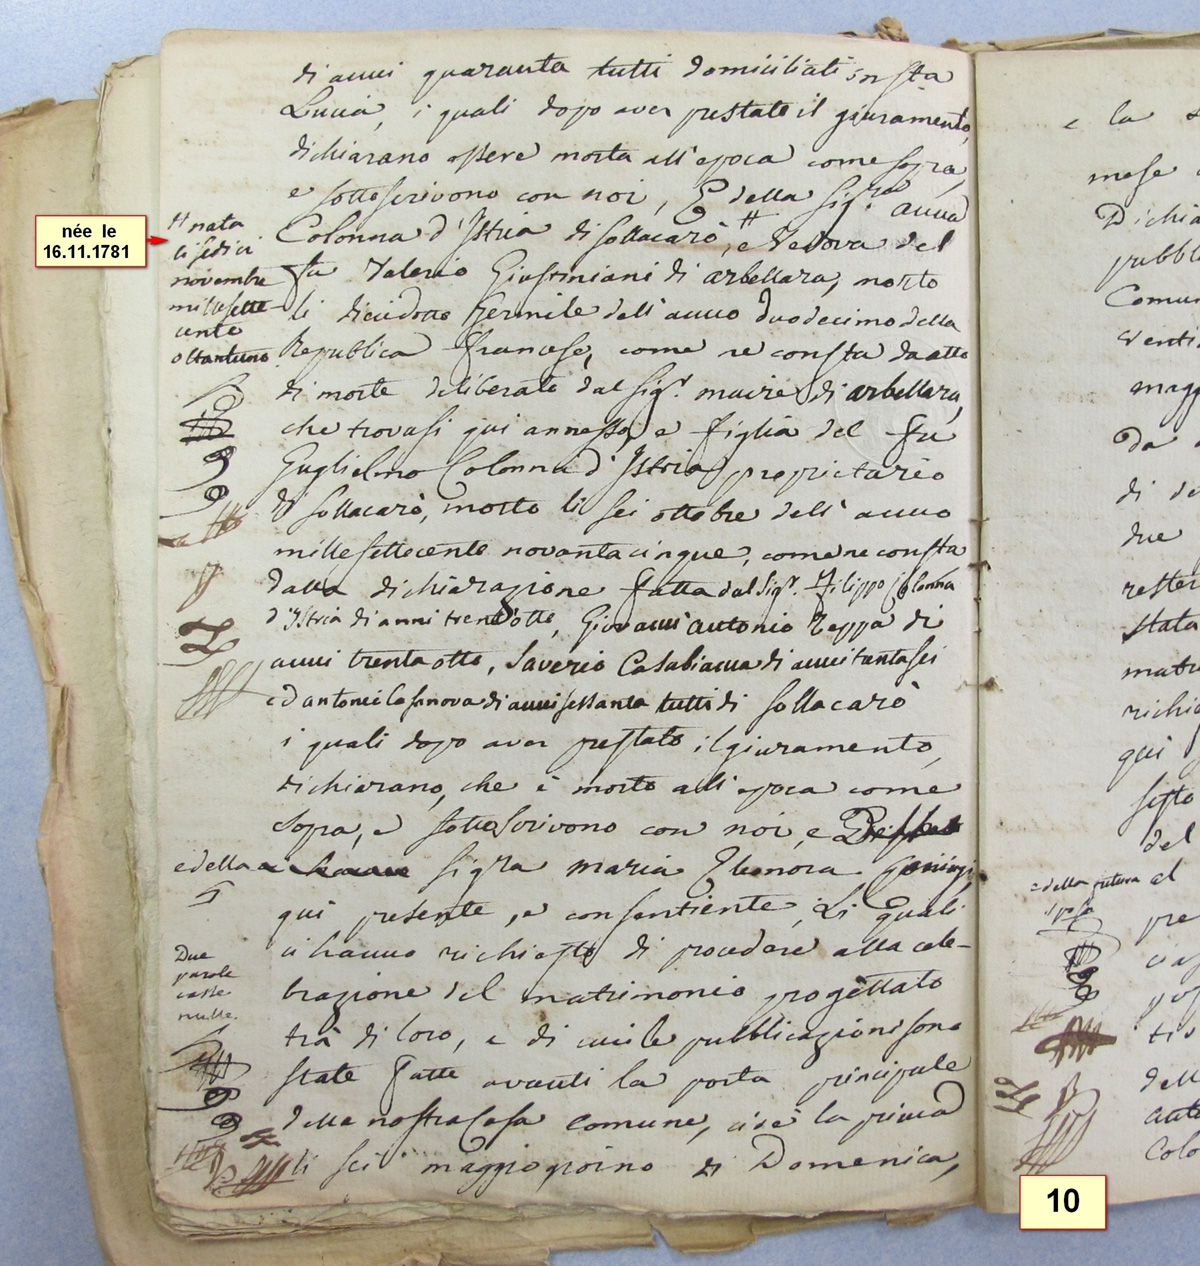 di anni quaranta tutti domiciliati in Sta
Lucia, i quali dopo aver prestato il giuramento,
dichiarano essere morta all'epoca come sopra,
e sottoscrivono con noi, E della Sig.ra anna
Colonna d'Istria di sollacarò, # e Vedova del
fu Valerio Giustiniani di arbellara, morto
li dicidotto Germile dell'anno duodecimo della
Republica francese, come ne consta da atto
di morte deliberato dal Sig.r maire di arbellara,
che trovasi qui annesso, e figlia del fu
Guglielmo Colonna d'Istria proprietario
di sollacarò, morto li sei ottobre dell'anno
mille settecento novantacinque, come ne consta
dalla dichiarazione fatta dal Sig.r Filippo Colonna
d'Istria di anni trent'otto, Giovanni antonio Peppa di
anni trenta otto, Saverio Casabianca di anni
ed antonio Casanova di anni sessanta tutti di sollacarò
i quali dopo aver prestato il giuramento,
dichiarano, che è morto all'epoca come
sopra, e sottoscrivono con noi, e
e della Sig.ra maria Eleonora
qui presente, e consentiente, Li quali
ci hanno richiesto di procedere alla cele-
brazione del matrimonio progettato
trà di loro, e di cui le pubblicazioni sono
state fatte avanti la porta principale
della nostra Casa comune, cioè la prima
li sei maggio giorno di Domenica,
# nata
li sedici
novembre
mille sette
cento
ottantuno
Due
parole
casse
nulle.
née le
16.11.1781
e la
mese
Dichia
pubbli
Comun
venti
magg
da
di
due
rester
stata
matri
richie
qui
sesto
del
e della futura
sposa
al
pre
dell
ante
Colo
10